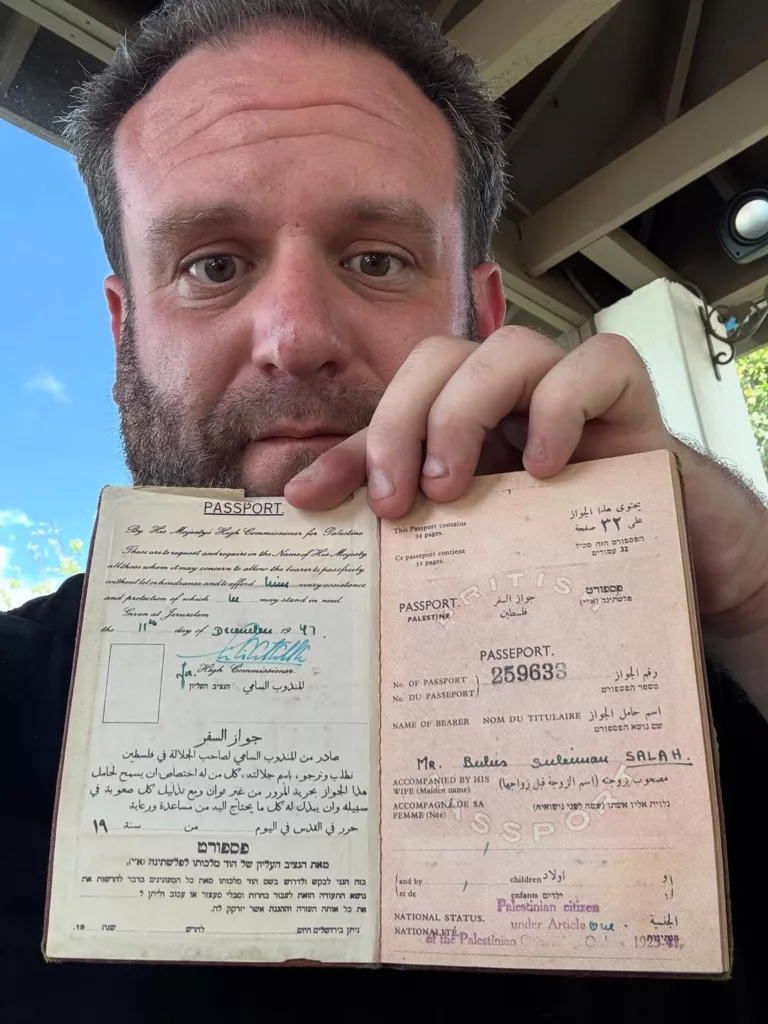 PASSPORT.
By His Majesty's High Commissioner for Palestine
These are to request and require in the Name of His Majesty
all those whom it may concern to allow the bearer to pass freely
without let or hindrance and to afford him every assistance
and protection of which he may stand in need.
Given at Jerusalem
the 11th day of December 1947.
for High Commissioner.
المندوب السامي הנציב העליון
جواز السفر
صادر من المندوب السامي لصاحب الجلالة في فلسطين
نطلب ونرجو، باسم جلالته، كل من له اختصاص ان يسمح لحامل
هذا الجواز بحرية المرور من غير توان ومع تذليل كل صعوبة في
سبيله وان يبذل له كل ما يحتاج اليه من مساعدة ورعاية
حرر في القدس في اليوم من سنة ١٩
פספורט
מאת הנציב העליון של הוד מלכותו לפלשתינה (א״י).
בזה הנני לבקש ולדרוש בשם הוד מלכותו מאת כל המעונינים בדבר להרשות את
נושא התעודה הזאת לעבור בחרות ומבלי מעצור או עכוב וליתן ל
את כל אותה העזרה וההגנה אשר יזדקק לה.
ניתן בירושלים היום לחדש שנת 19.
This Passport contains
32 pages.
يحتوي هذا الجواز
على ٣٢ صفحة
Ce passeport contient
32 pages.
הפספורט הזה מכיל
32 עמודים
BRITISH
PASSPORT.
PALESTINE
جواز السفر
فلسطين
פספורט
פלשתינה (א״י)
PASSEPORT.
No. OF PASSPORT
No. DU PASSEPORT
259633
رقم الجواز
מספר הפספורט
NAME OF BEARER NOM DU TITULAIRE اسم حامل الجواز
שם נושא הפספורט
Mr. Bulus Suleiman SALAH.
ACCOMPANIED BY HIS
WIFE (Maiden name)
مصحوب بزوجته (اسم الزوجة قبل زواجها)
ACCOMPAGNÉ DE SA
FEMME (Née)
נלוית אליו אשתו (שמה לפני נישואיה)
PASSPORT
and by
et de
children اولاد
enfants ילדים
و
NATIONAL STATUS.
NATIONALITÉ.
الجنسية
הנתינות
Palestinian citizen
under Article one
of the Palestinian